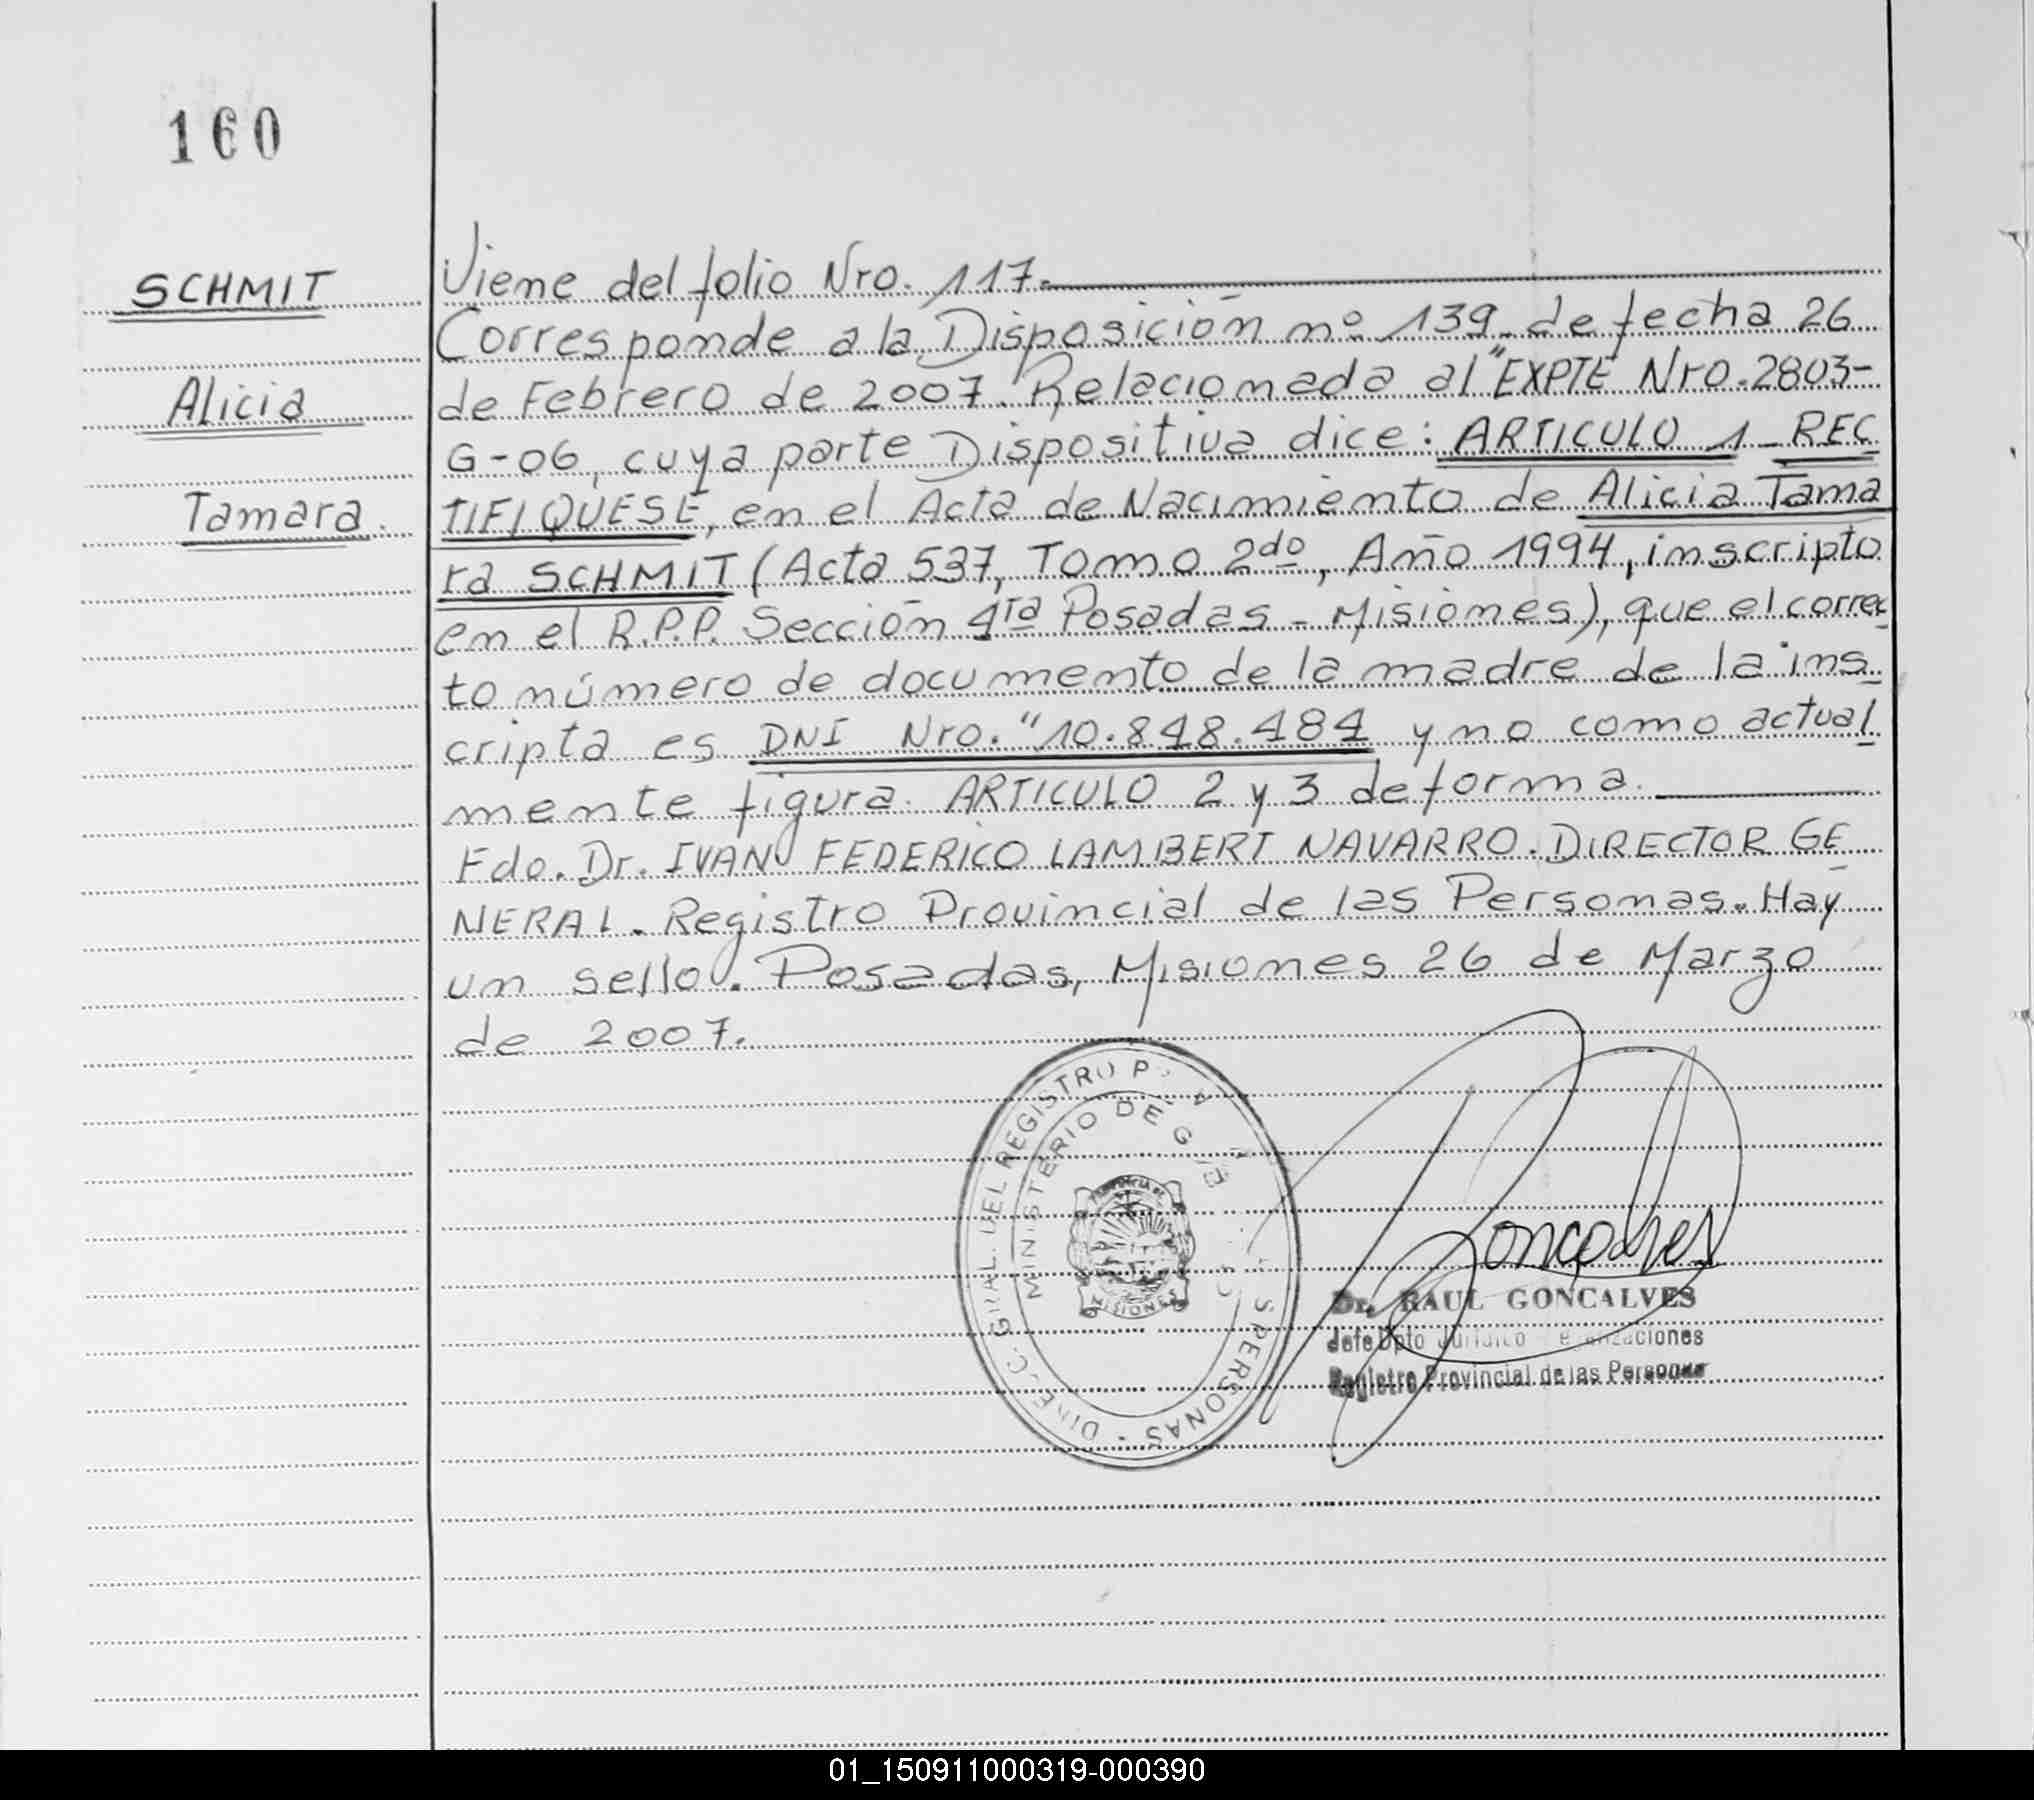 160
SCHMIT
Alicia
Tamara.
Viene del folio Nro. 117.
Corresponde a la Disposición nº 139 de fecha 26
de Febrero de 2007. Relacionada al "EXPTE Nro. 2803-
G-06, cuya parte Dispositiva dice: ARTICULO 1 REC
TIFIQUESE, en el Acta de Nacimiento de Alicia Tama
ra SCHMIT (Acta 537, Tomo 2do, Año 1994, inscripto
en el R.P.P. Sección 4ta Posadas - Misiones), que el correc
to número de documento de la madre de la ins
cripta es DNI Nro. "10.848.484 y no como actual
mente figura. ARTICULO 2 y 3 de forma.
Fdo. Dr. IVAN FEDERICO LAMBERT NAVARRO. DIRECTOR GE
NERAL. Registro Provincial de las Personas. Hay
un sello. Posadas, Misiones 26 de Marzo
de 2007.
DIREC. GRAL. DEL REGISTRO P S PERSONAS
MINISTERIO DE G
MISIONES
Goncalves
Dr. RAUL GONCALVES
Jefe Dpto Juridico
Registro Provincial de las Personas
01_150911000319-000390